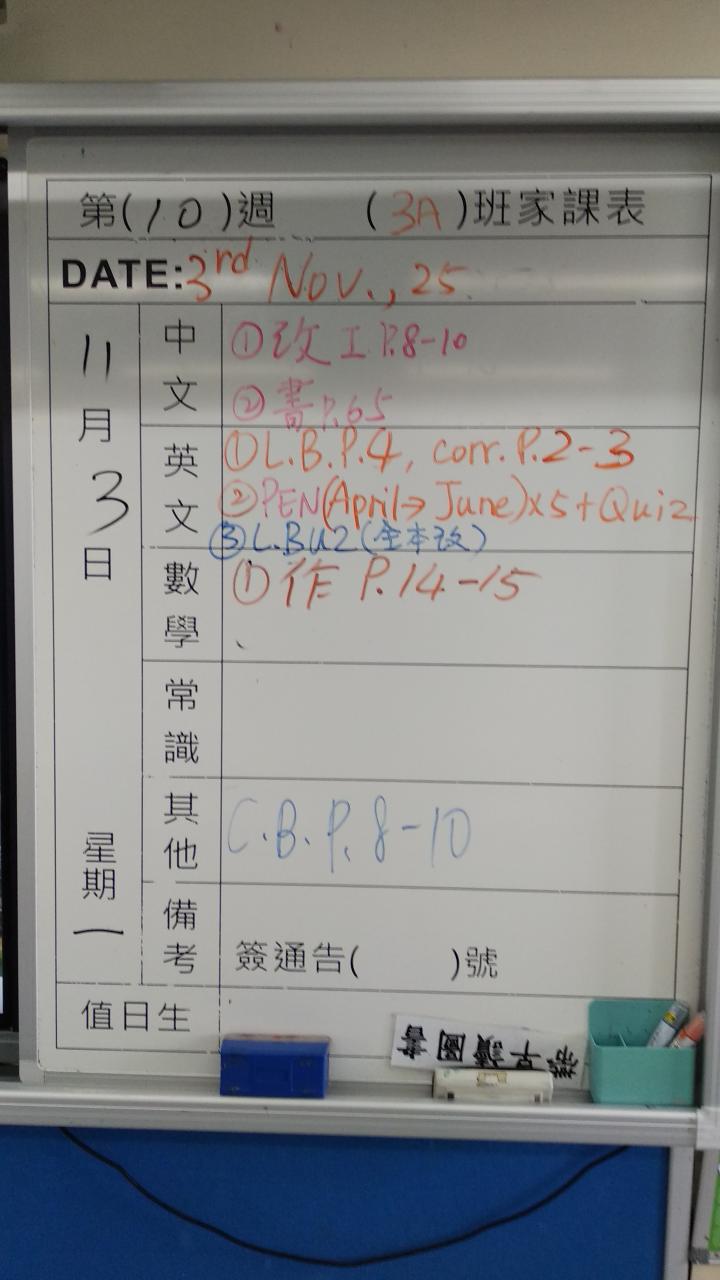 第(10)週 (3A)班家課表
DATE:3rd Nov., 25
11月3日 星期一
中文
①改工P.8-10
②書P.65
英文
①L.B.P.4, corr. P.2-3
②PEN(April→June)x5+Quiz
③L.BU2(全本改)
數學
①作 P.14-15
常識
其他
C.B.P.8-10
備考
簽通告( )號
值日生
帶早讀圖書